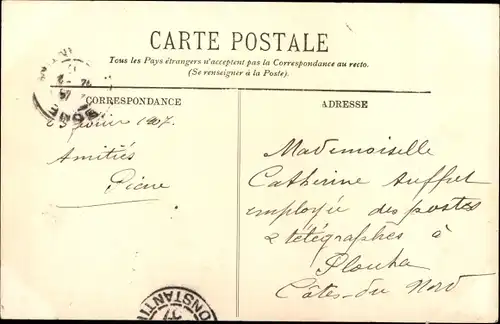 CARTE POSTALE
Tous les Pays étrangers n'acceptent pas la Correspondance au recto.
(Se renseigner à la Poste).
CORRESPONDANCE
février 1907.
Amitiés
ADRESSE
Mademoiselle
Catherine Auffret
employée des postes
& télégraphes à
Plouha
Côtes-du Nord
BONE
CONSTANTIN